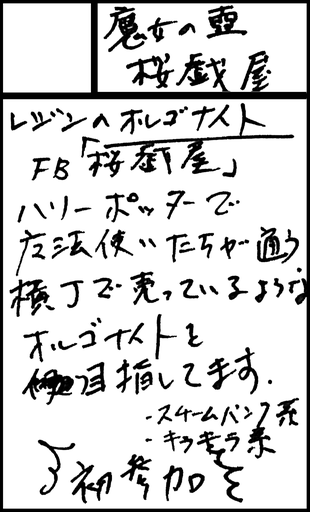 魔女の壺
桜戯屋
レジンのオルゴナイト
FB「桜戯屋」
ハリーポッターで
魔法使いたちが通う
横丁で売っているような
オルゴナイトを
目指してます.
・スチームパンク系
・キラキラ系
初参加